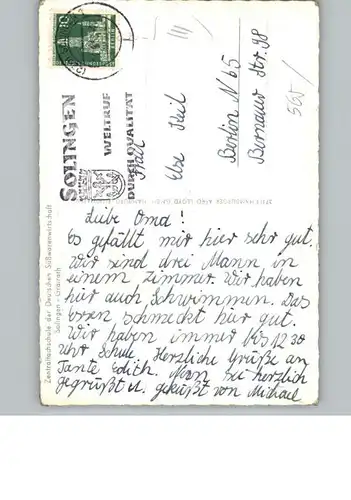 SOLINGEN
WELTRUF
DURCH QUALITÄT
Frau
Else Keil
Berlin N 65
Bernauer Str. 98
565/
Zentralfachschule der Deutschen Süßwarenwirtschaft
Solingen - Gräfrath
Liebe Oma!
Es gefällt mir hier sehr gut.
Wir sind drei Mann in
einem Zimmer. Wir haben
hier auch Schwimmen. Das
Essen schmeckt hier gut.
Wir haben immer bis 12 30
Uhr Schule. Herzliche Grüße an
Tante Edith. Nun sei herzlich
gegrüßt u. geküßt von Michael